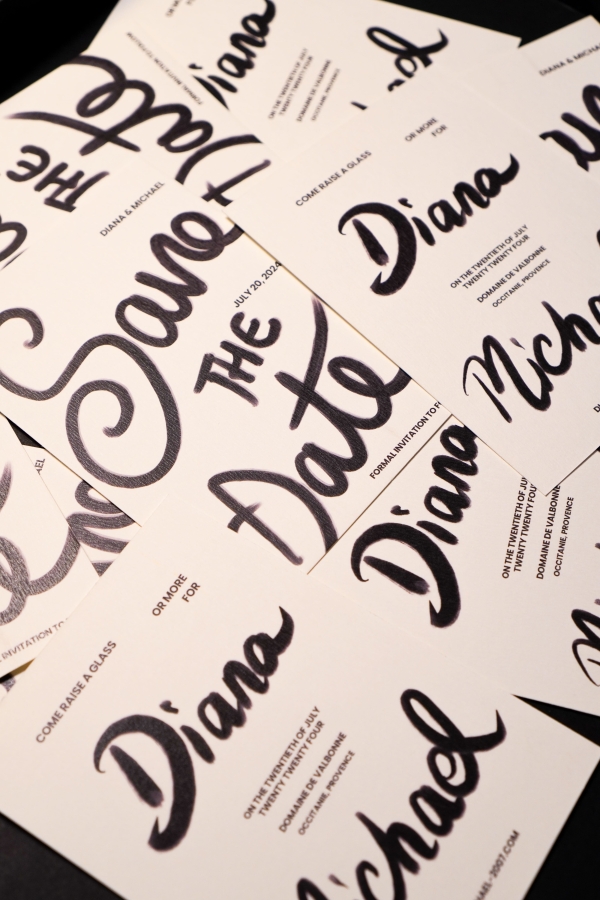 OR MORE
Diana
ON THE TWENTIETH OF JULY
TWENTY TWENTY FOUR
DOMAINE DE VALBONNE
OCCITANIE, PROVENCE
THE
Date
DIANA & MICHAEL
Save
JULY 20, 2024
THE
Date
FORMAL INVITATION TO
DIANA & MICHA
COME RAISE A GLASS
OR MORE
FOR
Diana
ON THE TWENTIETH OF JULY
TWENTY TWENTY FOUR
DOMAINE DE VALBONNE
OCCITANIE, PROVENCE
Micha
Diana
ON THE TWENTIETH OF JU
TWENTY TWENTY FOU
DOMAINE DE VALBONNE
OCCITANIE, PROVENCE
AEL
INVITATION TO
COME RAISE A GLASS
OR MORE
FOR
Diana
ON THE TWENTIETH OF JULY
TWENTY TWENTY FOUR
DOMAINE DE VALBONNE
OCCITANIE, PROVENCE
Michael
HAEL-2007.COM